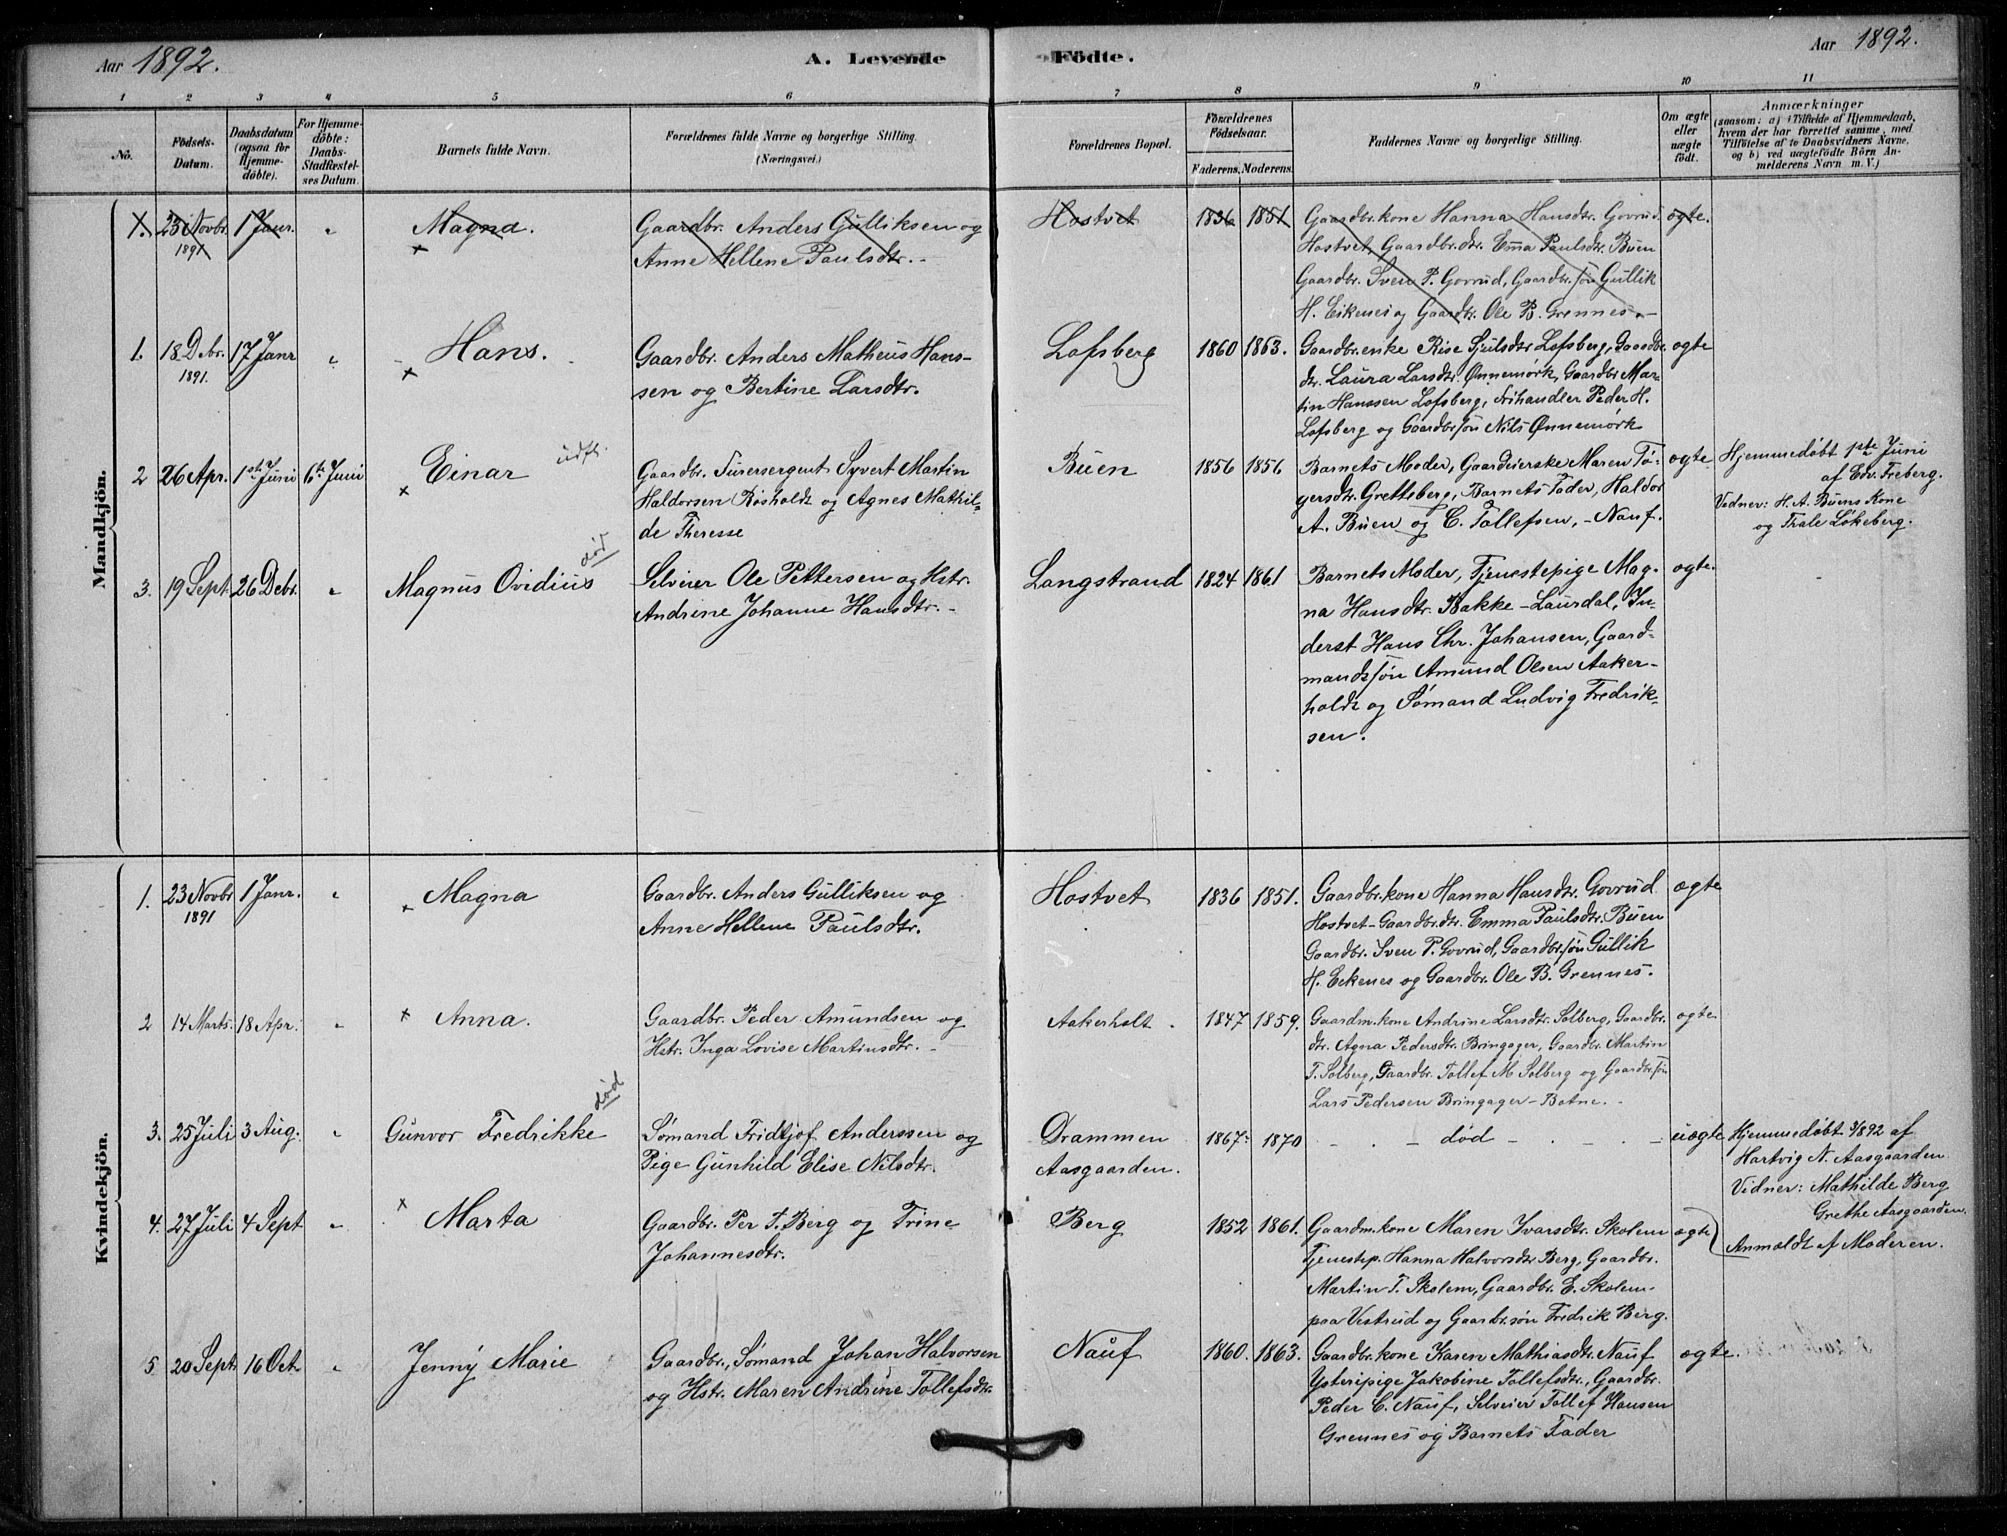 Aar 1892.
A. Levende Födte.
Aar 1892.
1 2 3 4 5 6 7 8 9 10 11
No.
Födsels-Datum.
Daabsdatum (ogsaa for Hjemme-döbte).
For Hjemme-döbte: Daabs-Stadfæstel-ses Datum.
Barnets fulde Navn.
Forældrenes fulde Navne og borgerlige Stilling.
(Næringsvei.)
Forældrenes Bopæl.
Forældrenes Födselsaar.
Faderens. Moderens.
Faddernes Navne og borgerlige Stilling.
Om ægte eller uægte födt.
Anmærkninger
(saasom: a) i Tilfælde af Hjemmedaab,
hvem der har forrettet samme, med
Tilföielse af to Daabsvidners Navne,
og b) ved uægtefödte Börn An-
melderens Navn m. V.)
Mandkjön.
1. 23 Novbr. 1891 1 Janr. " Magna.
Gaardbr. Anders Gulliksen og
Anne Hellene Paulsdtr. -
Hostvet 1836 1851
Gaardbr.kone Hanna Hansdtr. Govrud
Hostvet, Gaardbr.dtr. Emma Paulsdtr. Buen
Gaardbr. Sven P. Govrud, Gaardbr.søn Gullik
H. Eikenes og Gaardbr. Ole B. Grennes. -
ægte.
1. 18 Dbr. 1891. 17 Janr " Hans.
Gaardbr. Anders Matheus Han-
sen og Bertine Larsdtr.
Lofsberg 1860 1863.
Gaardbr.enke Rise Sjulsdtr Lofsberg, Gaardbr.
dtr. Laura Larsdtr. Ønnemørk, Gaardbr Mar-
tin Hanssen Lofsberg, Frihandler Peder H.
Lofsberg og Gaardbrsøn Nils Ønnemørk
ægte
2 26 Apr. 1ste Juni 6te Juni Einar udfl.
Gaardbr. Furersergent Syvert Martin
Haldorsen Røsholdt og Agnes Mathil-
de Theresse
Buen 1856 1856
Barnets Moder, Gaardeierske Maren Tø-
gersdtr. Grettsberg, Barnets Fader, Haldor
A. Buen og C. Tollefsen, - Nauf.
ægte
Hjemmedøbt 1ste Juni
af Edv. Freberg.
Vidner: H. A. Buens Kone
og Trale Løkeberg.
3. 19 Sept. 26 Debr. " Magnus Ovidius død
Selveier Ole Pettersen og Hstr.
Andrine Johanne Hansdtr. -
Langstrand 1824 1861
Barnets Moder, Tjenestepige Mag-
na Hansdtr. Bakke - Laurdal, In-
derst Hans Chr. Johansen, Gaard-
mandssøn Amund Olsen Aaker-
holdt og Sømand Ludvig Fredrik-
sen.
ægte.
Kvindekjön.
1. 23 Novbr 1891 1 Janr. " Magna
Gaardbr. Anders Gulliksen og
Anne Hellene Paulsdtr.
Hostvet 1836 1851.
Gaardbr.kone Hanna Hansdtr. Govrud
Hostvet - Gaardbr.dtr. Emma Paulsdtr. Buen
Gaardbr. Sven P. Govrud, Gaardbr.søn Gullik
H. Eekenes og Gaardbr. Ole B. Grennes.
ægte
2 14 Marts. 18 Apr. " Anna.
Gaardbr. Peder Amundsen og
Hstr. Inga Lovise Martinsdtr. -
Aakerholt. 1847 1859.
Gaardm.kone Andrine Larsdtr. Solberg, Gaardbr.
dtr. Agna Pedersdtr. Bringager, Gaardbr. Martin
T. Solberg, Gaardbr. Tollef M. Solberg og Gaardbr.søn
Lars Pedersen Bringager - Botne. -
ægte
3. 25 Juli 3 Aug. " Gunvor Fredrikke død
Sømand Fridtjof Anderssen og
Pige Gunhild Elise Nilsdtr.
Drammen
Aasgaarden.
1867. 1870
- - død - - -
uægte
Hjemmedøbt 3/8 92 af
Hartvig N. Aasgaarden
Vidner: Mathilde Berg
Grethe Aasgaarden.
Anmeldt af Moderen.
4. 27 Juli 4 Sept " Marta
Gaardbr. Per T. Berg og Trine
Johannesdtr.
Berg 1852 1861.
Gaardm.kone Maren Ivarsdtr. Skolem
Tjenestep. Hanna Halvorsdtr Berg, Gaardbr.
Martin T. Skolem, Gaardbr. E. Skolem
paa Vestrud og Gaardbr.søn Fredrik Berg.
ægte
5 20 Sept. 16 Oct. " Jenny Marie
Gaardbr., Sømand Johan Halvorsen
og Hstr. Maren Andrine Tollefsdtr.
Nauf 1860. 1863.
Gaardbr.kone Karen Mathiasdtr. Nauf
Ysteripige Jakobine Tollefsdtr., Gaardbr.
Peder C. Nauf, Selveier Tollef Hansen
Grennes og Barnets Fader
ægte.